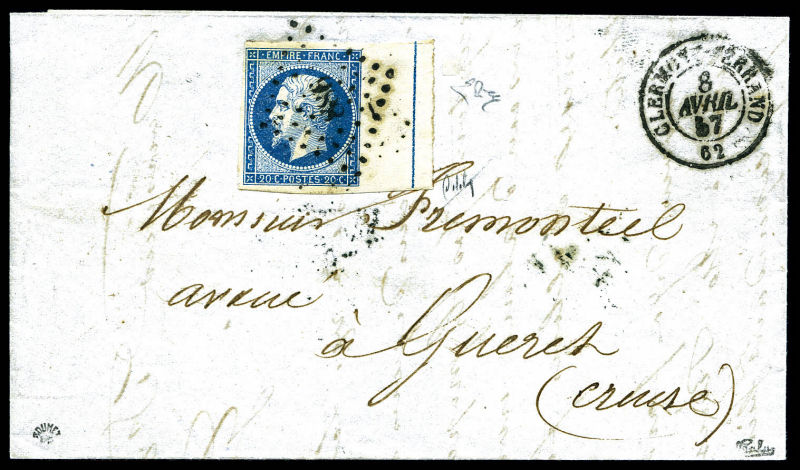 EMPIRE FRANC
20·C·POSTES·20·C
CLERMONT-FERRAND
8
AVRIL
57
62
Monsieur Fremonteil
avoué
à Gueret
(Creuse)
ROUMET